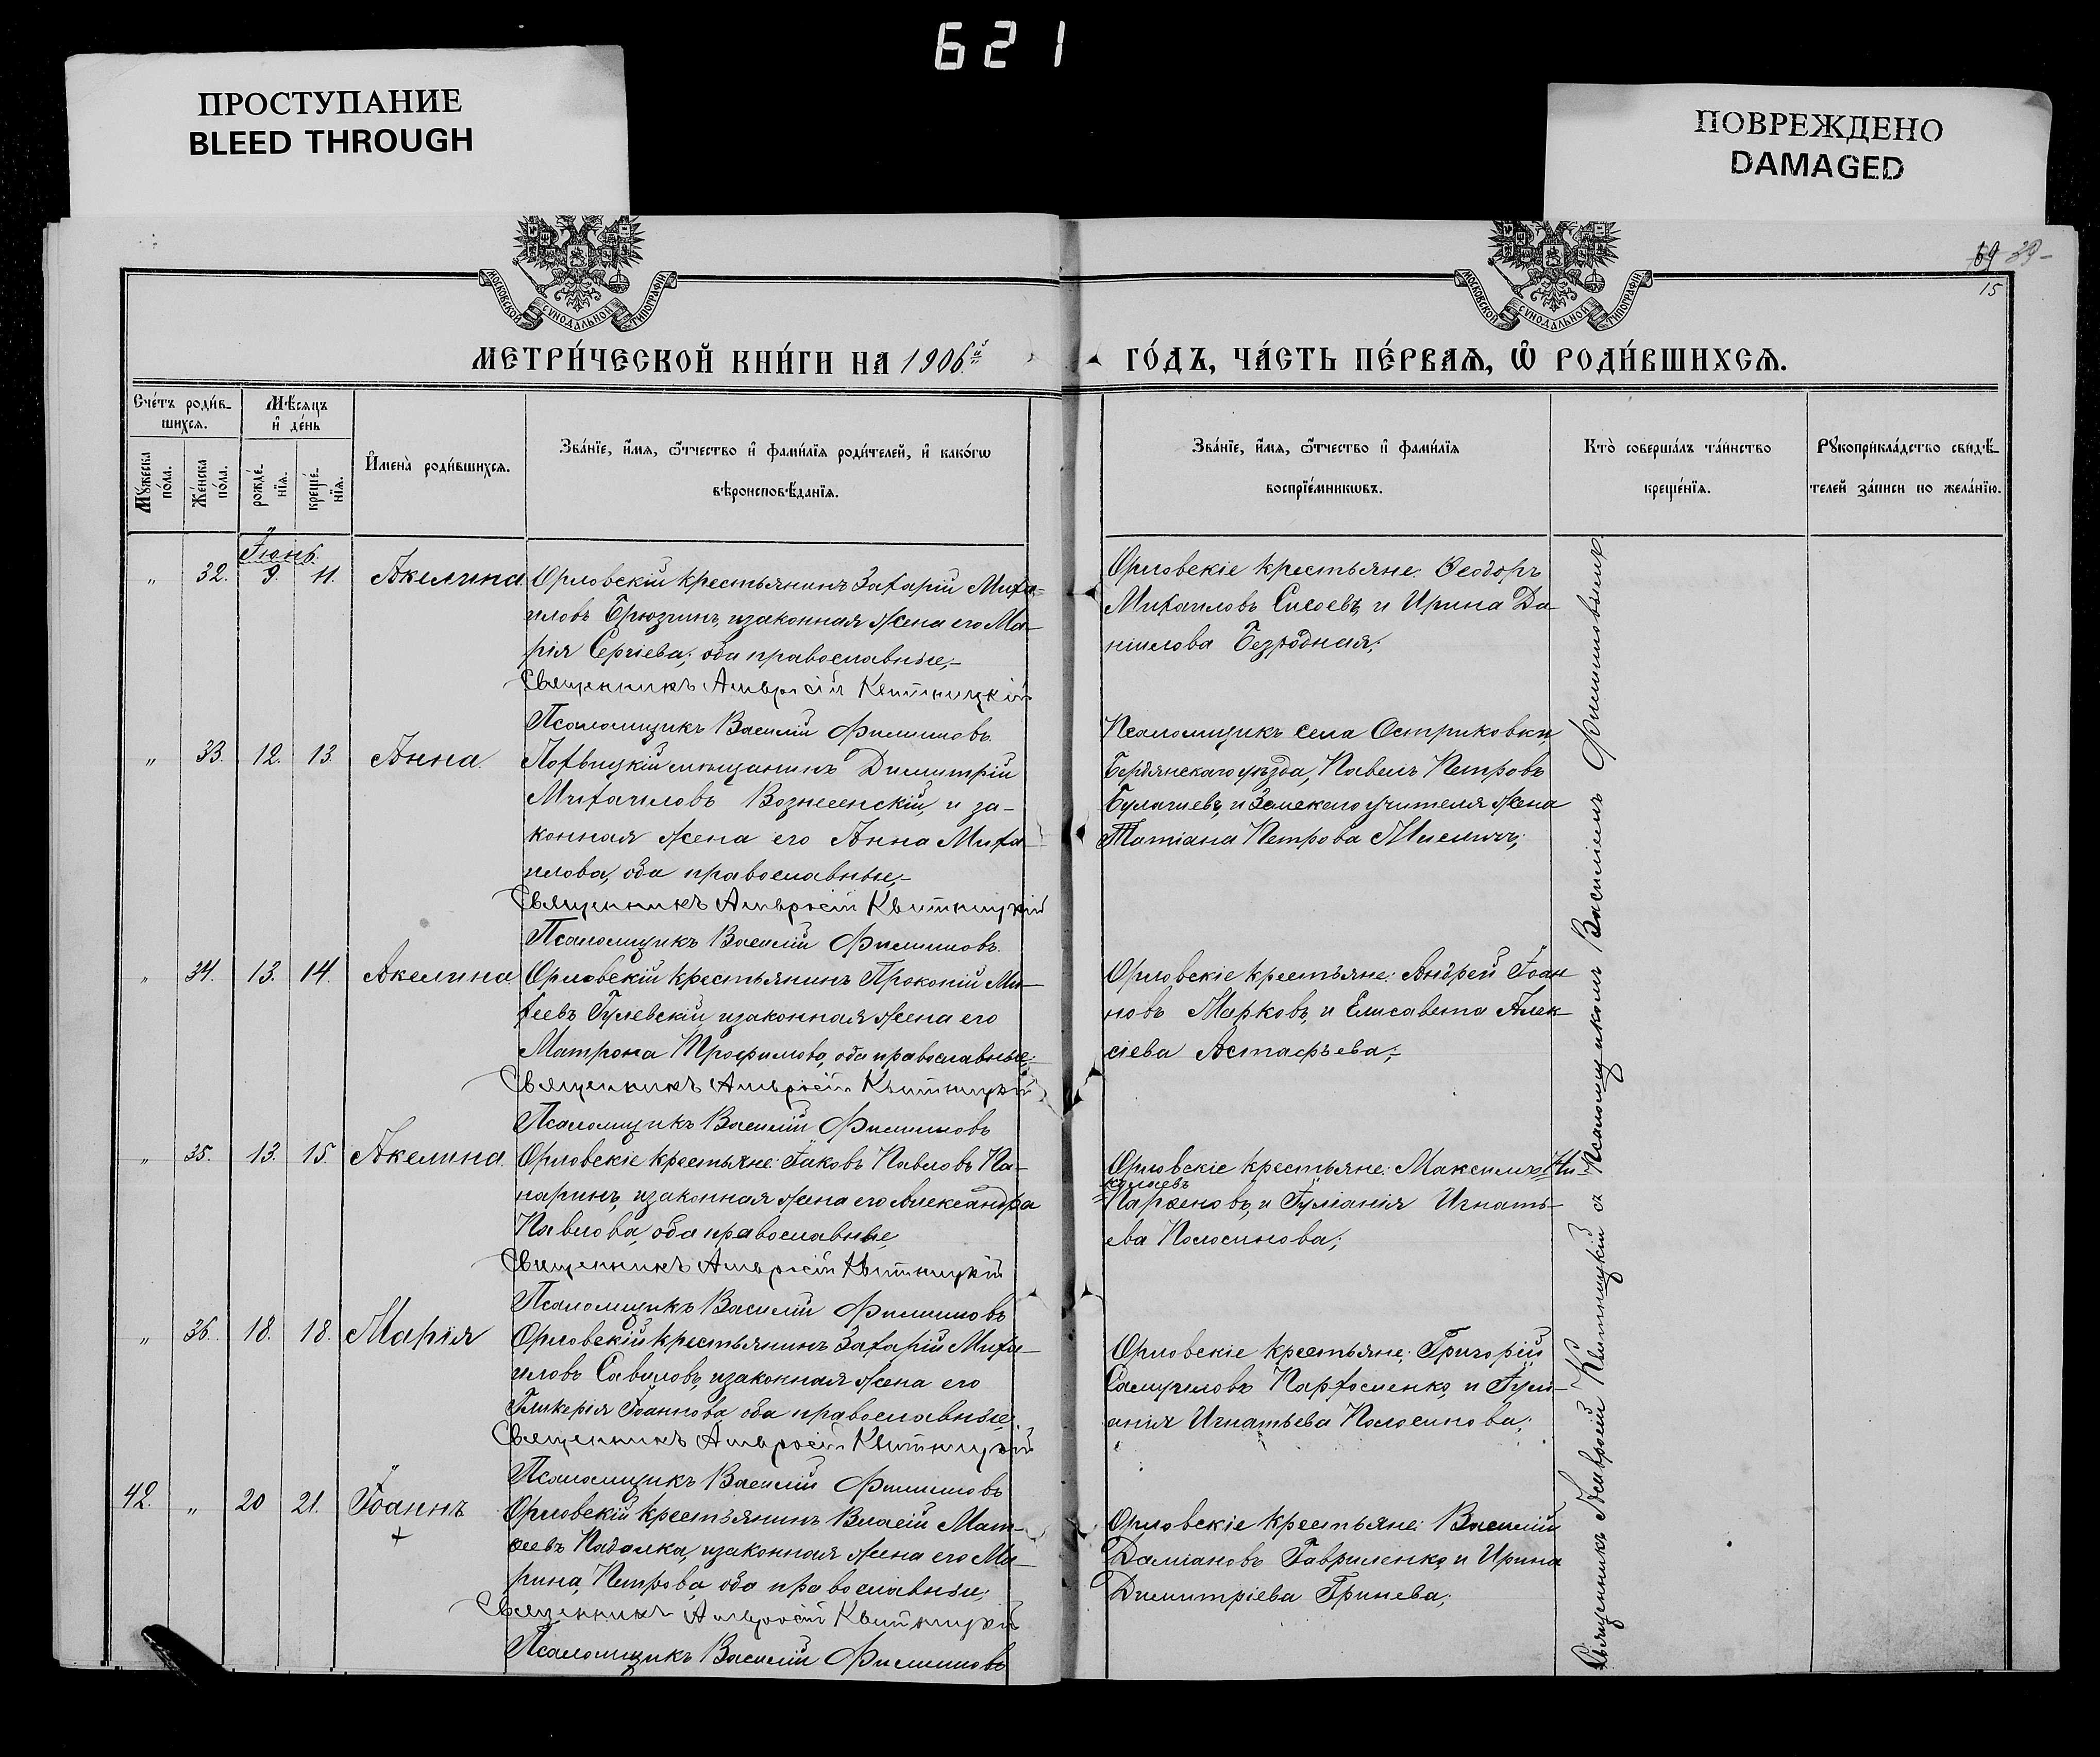 621
ПРОСТУПАНИЕ
BLEED THROUGH
ПОВРЕЖДЕНО
DAMAGED
69 29-
15
МОСКОВСКОЙ СѴНОДАЛЬНОЙ ТИПОГРАФІИ
МОСКОВСКОЙ СѴНОДАЛЬНОЙ ТИПОГРАФІИ
МЕТРИ́ЧЕСКОЙ КНИ́ГИ НА 1906й
ГО́ДЪ, ЧА́СТЬ ПЕ́РВАѦ, Ѽ РОДИ́ВШИХСѦ.
Сче́тъ роди́в-
шихсѧ.
Мѣ́сяцъ
и҆ де́нь
Мꙋ́жеска
по́ла.
Же́нска
по́ла.
рожде́-
нїѧ.
креще́-
нїѧ.
И҆мена̀ роди́вшихсѧ.
Зва́нїе, и҆́мѧ, ѻ҆́тчество и҆ фами́лїѧ роди́телей, и҆ како́гѡ
вѣроисповѣ́данїѧ.
Зва́нїе, и҆́мѧ, ѻ҆́тчество и҆ фами́лїѧ
воспрїе́мникѡвъ.
Кто̀ соверша́лъ та́инство
креще́нїѧ.
Рꙋкоприкла́дство свидѣ́-
телей за́писи по жела́нїю.
Іюнь.
" 32. 9. 11. Акелина
Орловскій крестьянинъ Захарій Миха-
иловъ Брюзгинъ, и законная жена его Ма-
рія Сергіева; оба православные,-
Священникъ Амвросій Квитницкій
Псаломщикъ Василій Филиповъ.
Орловскіе крестьяне: Ѳеодоръ
Михаиловъ Сысоевъ, и Ирина Да-
ніилова Безродная;
" 33. 12. 13. Анна.
Лохвицкій мѣщанинъ Димитрій
Михаиловъ Вознесенскій, и за-
конная жена его Анна Миха-
илова, оба православные,-
Священникъ Амвросій Квитницкій
Псаломщикъ Василій Филиповъ.
Псаломщикъ села Остриковки,
Бердянскаго уѣзда, Павелъ Петровъ
и Земскаго учителя жена
Татіана Петрова
" 34. 13. 14. Акелина
Орловскій крестьянинъ Прокопій Ми-
хеевъ Гулевскій, и законная жена его
Матрона Трофимова, оба православные;
Священникъ Амвросій Квитницкій
Псаломщикъ Василій Филиповъ
Орловскіе крестьяне: Андрей Іоан
новъ Марковъ, и Елисавета Алек
сіева Астафьева;-
" 35. 13. 15. Акелина
Орловскіе крестьяне: Іаковъ Павловъ Па-
наринъ, и законная жена его Александра
Павлова, оба православные,
Священникъ Амвросій Квитницкій
Псаломщикъ Василій Филиповъ
Орловскіе крестьяне: Максимъ Ни-
колаевъ
Парѳеновъ, и Іуліанія Игнать-
ева Колосинова;
" 36. 18. 18. Марія
Орловскій крестьянинъ Захарій Миха-
иловъ Савиловъ, и законная жена его
Гликерія Іоаннова оба православные;
Священникъ Амвросій Квитницкій
Псаломщикъ Василій Филиповъ
Орловскіе крестьяне: Григорій
Самуиловъ Пархоменко, и Іулі-
анія Игнатьева Колосинова;
42. " 20 21. Іоаннъ
+
Орловскій крестьянинъ Власій Мат-
ѳеевъ Падалка, и законная жена его Ма-
рина Петрова, оба православные;
Священникъ Амвросій Квитницкій
Псаломщикъ Василій Филиповъ
Орловскіе крестьяне: Василій
Даміановъ Гавриленко, и Ирина
Димитріева Гринева;
Священникъ Амвросій Квитницкій съ Псаломщикомъ Василіемъ Филиповымъ.